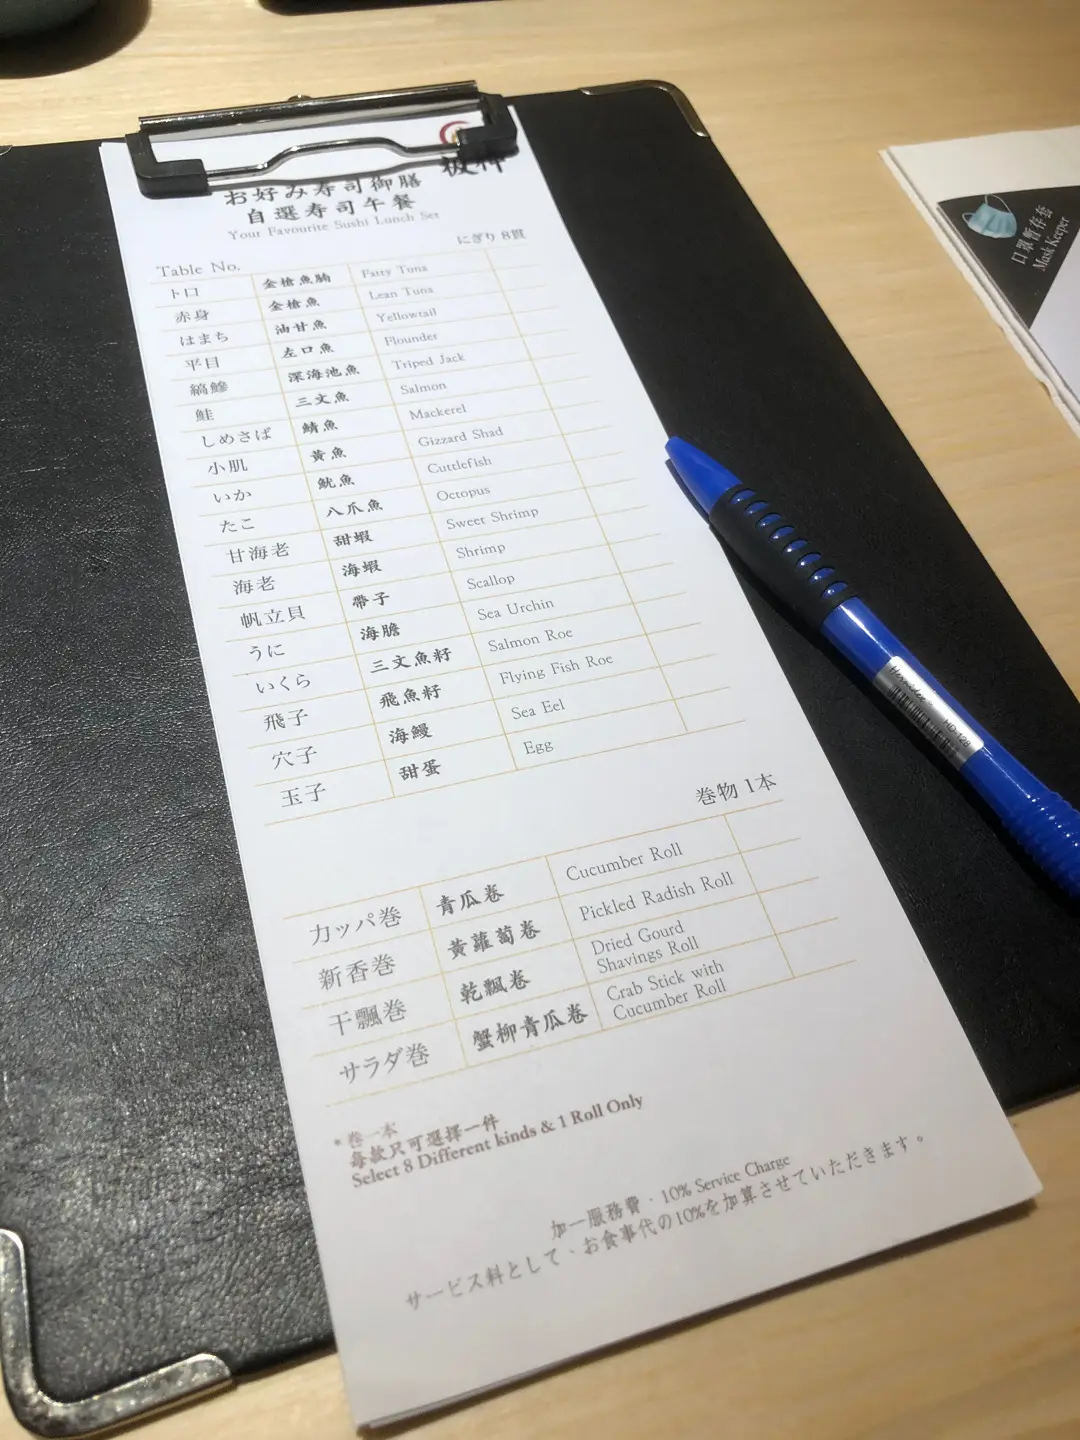 お好み寿司御膳
自選寿司午餐
Your Favourite Sushi Lunch Set
Table No.
にぎり 8貫
トロ 金槍魚腩 Fatty Tuna
赤身 金槍魚 Lean Tuna
はまち 油甘魚 Yellowtail
平目 左口魚 Flounder
縞鰺 深海池魚 Triped Jack
鮭 三文魚 Salmon
しめさば 鯖魚 Mackerel
小肌 黃魚 Gizzard Shad
いか 魷魚 Cuttlefish
たこ 八爪魚 Octopus
甘海老 甜蝦 Sweet Shrimp
海老 海蝦 Shrimp
帆立貝 帶子 Scallop
うに 海膽 Sea Urchin
いくら 三文魚籽 Salmon Roe
飛子 飛魚籽 Flying Fish Roe
穴子 海鰻 Sea Eel
玉子 甜蛋 Egg
巻物 1本
カッパ巻 青瓜卷 Cucumber Roll
新香巻 黃蘿蔔卷 Pickled Radish Roll
干瓢巻 乾瓢卷 Dried Gourd
Shavings Roll
サラダ巻 蟹柳青瓜卷 Crab Stick with
Cucumber Roll
*巻一本
每款只可選擇一件
Select 8 Different kinds & 1 Roll Only
加一服務費・10% Service Charge
サービス料として、お食事代の10%を加算させていただきます。
口罩暫存套
Mask Keeper
HO-128